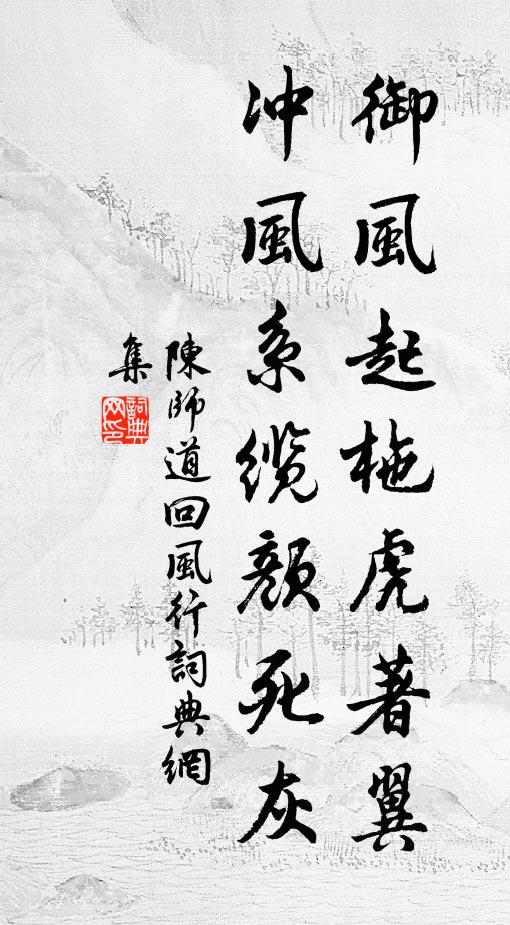 御風起柂虎著翼
冲風系缆顏死灰
陳師道回風行詞典網
集
詞典
网印